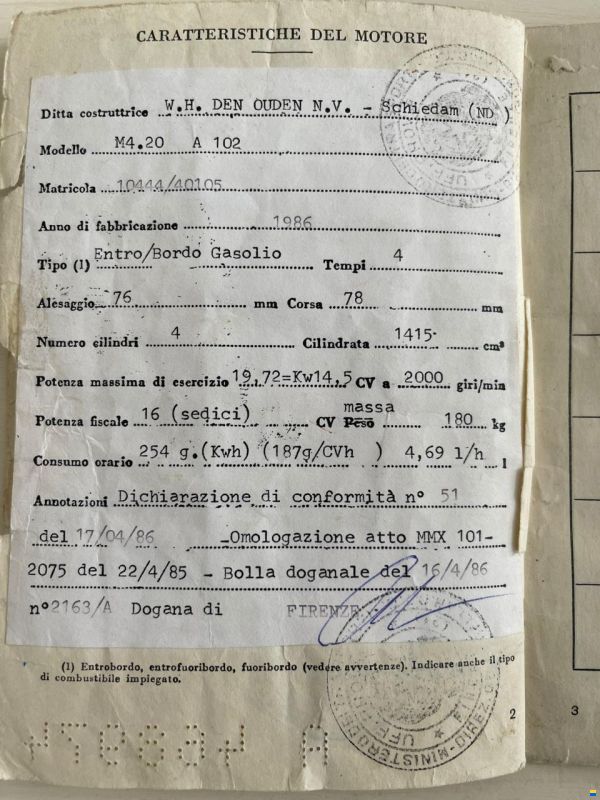 CARATTERISTICHE DEL MOTORE
Ditta costruttrice W.H. DEN OUDEN N.V. - Schiedam (ND)
Modello M4.20 A 102
Matricola 10444/40105
Anno di fabbricazione 1986
Tipo (1) Entro/Bordo Gasolio Tempi 4
Alesaggio 76 mm Corsa 78 mm
Numero cilindri 4 Cilindrata 1415 cm³
Potenza massima di esercizio 19,72=Kw14,5 CV a 2000 giri/min
massa
Potenza fiscale 16 (sedici) CV Peso 180 kg
Consumo orario 254 g.(Kwh) (187g/CVh ) 4,69 l/h l
Annotazioni Dichiarazione di conformità n° 51
del 17/04/86 -Omologazione atto MMX 101-
2075 del 22/4/85 - Bolla doganale del 16/4/86
n°2163/A Dogana di FIRENZE
(1) Entrobordo, entrofuoribordo, fuoribordo (vedere avvertenze). Indicare anche il tipo
di combustibile impiegato.
2
3